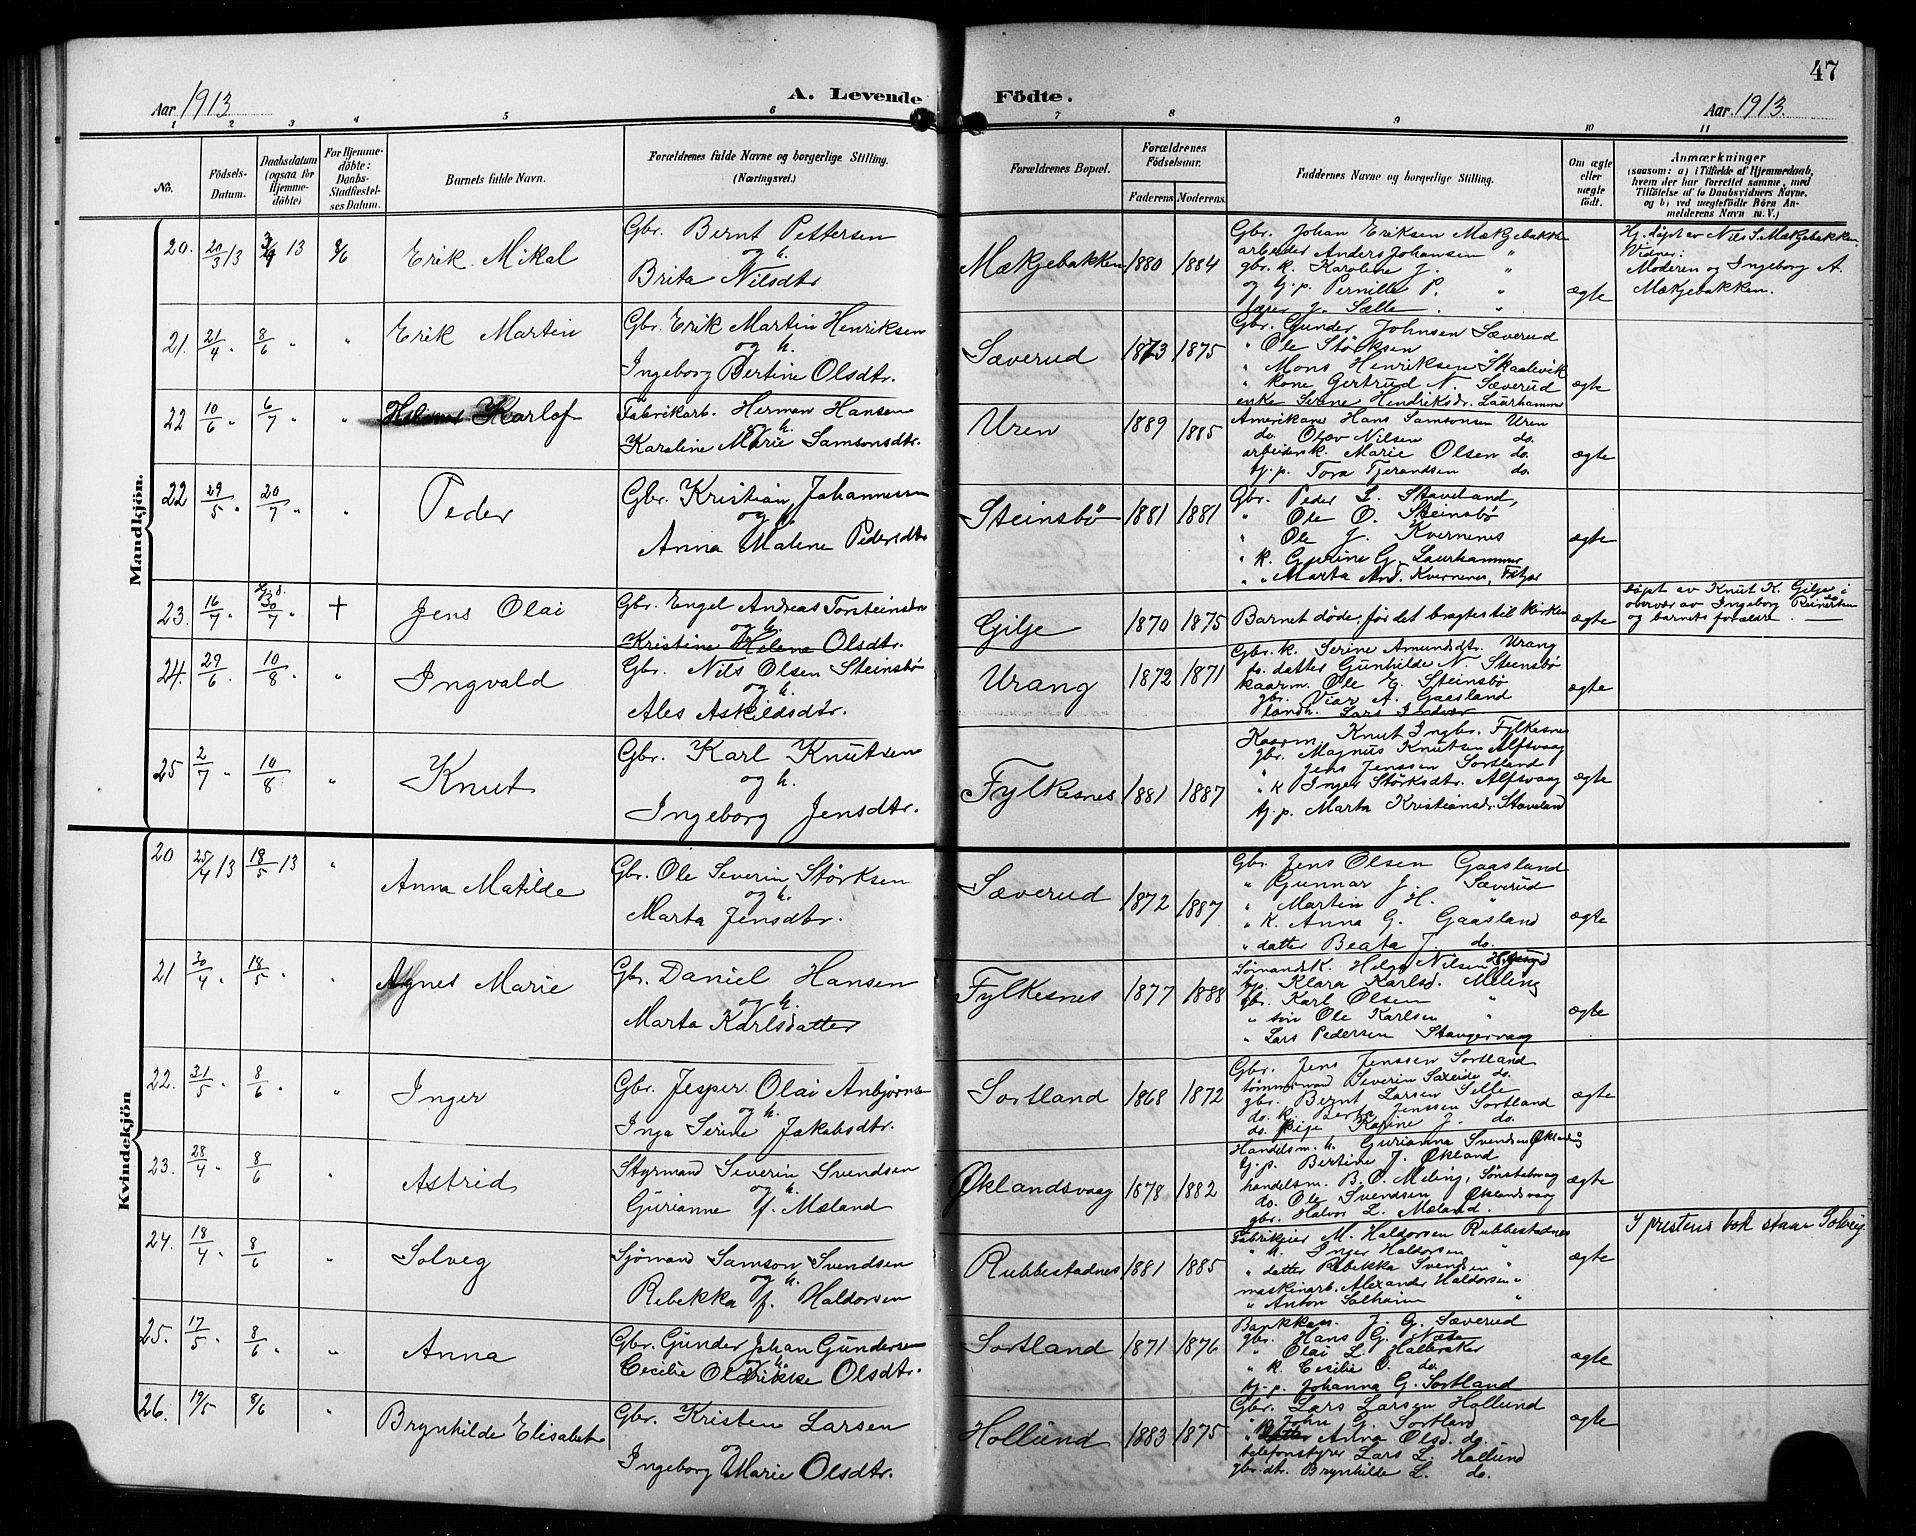 47
Aar 1913
A. Levende Födte.
Aar 1913.
1 2 3 4 5 6 7 8 9 10 11
No.
Födsels-Datum.
Daabsdatum (ogsaa for Hjemme-döbte)
For Hjemme-döbte: Daabs-Stadfæstel-ses Datum.
Barnets fulde Navn.
Forældrenes fulde Navne og borgerlige Stilling.
(Næringsvei.)
Forældrenes Bopæl.
Forældrenes Födselsaar.
Faderens Moderens.
Faddernes Navne og borgerlige Stilling.
Om ægte eller uægte födt.
Anmærkninger
(saasom: a) i Tilfælde af Hjemmedaab,
hvem der har forrettet samme, med
Tilföielse af to Daabsvidners Navne,
og b) ved uægtefödte Börn An-
melderens Navn m. V.)
Mandkjön.
20. 20/3 13 13 8/6 Erik Mikal
Gbr. Bernt Pettersen
og h.
Brita Nilsdtr
Mækjebakken 1880 1884
Gbr. Johan Eriksen Mækjebakken
arbeider Anders Johansen "
gbr. k. Karoline J. "
og tj.p. Pernille P. "
J. Sælle "
ægte
Hj. døpt av Nils S. Mækjebakken.
Vidner:
Moderen og Ingeborg A.
Mækjebakken.
21. 21/4 " 8/6 " " Erik Martin
Gbr. Erik Martin Henriksen
og h.
Ingeborg Bertine Olsdtr.
Sæverud 1873 1875
Gbr. Gunder Johnsen Sæverud
" Ole Størksen "
" Mons Henriksen Skaalevik
" kone Gertrud N. Sæverud
enke Serine Hendriksdr. Laurhammer
ægte
22 10/6 " 6/7 " " Karlof
Fabrikarb. Herman Hansen
og h.
Karoline Marie Samsonsdtr.
Uren 1889 1885
Amerikaner Hans Samsonsen Uren
do. Olav Nilsen do.
arbeidersk. Marie Olsen do.
tj.p. Tora Tjerandsen do.
ægte
22 29/5 " 20/7 " " Peder
Gbr. Kristian Johannesen
og h.
Anna Malene Pedersdtr
Steinsbø 1881 1881
Gbr. Peder L. Staveland,
" Ole O. Steinsbø
" Ole J. Kvernenes
" k. Gurine G. Laurhammer
" " Marta And. Kvernenes, Fitjar
ægte
23. 16/7 " 30/7 " + Jens Olai
Gbr. Engel Andreas Torsteinsen
og h.
Kristine Helene Olsdtr.
Gilje 1870 1875
Barnet døde før det bragtes til kirken
ægte
Døpt av Knut K. Gilje i
overvær av Ingeborg Reinertsen
og barnets forældre.
24. 29/6 " 10/8 " " Ingvald
Gbr. Nils Olsen Steinsbø
og h.
Ales Askildsdtr.
Urang 1872 1871
Gbr. k. Serine Amundsdtr. Urang
do. datter Gunhilde N. Steinsbø
kaarm. Ole E. Steinsbø
gbr. Viar A. Gaasland
landh. Lars Indvær
ægte
25 2/7 " 10/8 " Knut
Gbr. Karl Knutsen
og h.
Ingeborg Jensdtr.
Fylkesnes 1881 1887
Kaarm. Knut Ingbr. Fylkesnes
gbr. Magnus Knutsen Alfsvaag
" Jens Jenssen Sortland
" k Inger Størksdtr. Alfsvaag
tj.p. Marta Kristiansdr. Staveland
ægte
Kvindekjön
20 25/4 13 18/5 13 " Anna Matilde
Gbr. Ole Severin Størksen
og h.
Marta Jensdtr.
Sæverud 1872 1887
Gbr. Jens Olsen Gaasland
" Gunnar J. Sæverud
" Martin H. "
" k. Anna G. Gaasland
" datter Beata J. do.
ægte
21 30/4 " 18/5 " " Agnes Marie
Gbr. Daniel Hansen
og h.
Marta Karlsdatter
Fylkesnes 1877 1888
Sømandsk. Helga Nilsen
tj.p. Klara Karlsd. Meling
gbr. Karl Olsen "
" søn Ole Karlsen "
" Lars Pedersen Stangervaag
ægte
22. 31/5 " 8/6 " " Inger
Gbr. Jesper Olai Anbjørnsen
og h.
Inga Serine Jakobsdtr.
Sortland 1868 1872
Gbr. Jens Jenssen Sortland
tømmermand Severin Saxeide do.
gbr. Bernt Larsen Selle
do. k. Berta Jenssen Sortland
do. pige Karine J. do.
ægte
23. 28/4 " 8/6 Astrid
Styrmand Severin Svendsen
og h.
Gurianne f. Mæland
Øklandsvaag 1878 1882
Handelsm. h. Gurianna Svendsen Øklandsv.
tj.p. Bertine J. Økland
handelsm. B. O. Meling,
do. Ole Svendsen Øklandsvaag
gbr. Halvor L. Mæland.
ægte
24. 18/4 " 8/6 " Solveg
Sjømand Samson Svendsen
og h.
Rebekka f. Haldorsen
Rubbestadnes 1881 1885
Fabrikeier M. Haldorsen Rubbestadnes
" h. Inger Haldorsen "
" datter Rebekka Svendsen "
maskinarb. Alexander Haldorsen "
" Anton Salheim "
ægte
I prestens bok staar Solveig
25. 17/5 " 8/6 " " Anna
Gbr. Gunder Johan Gundersen
og h.
Cecilie Oldrikke Olsdtr.
Sortland 1871 1876
Bankkas. J. G. Sæverud
gbr. Hans G. Næse
" Olai L. Halleraker
" k. Cecilie O. do.
tj.p. Johanna G. Sortland
ægte
26. 19/5 8/6 " Brynhilde Elisabet
Gbr. Kristen Larsen
og
Ingeborg Marie Olsdtr.
Hollund 1883 1875
Gbr. Lars Larsen Hollund
" John G. Sortland
" Anna Olsd. do.
telefonstyrer Lars L. Hollund
gbr.dtr. Brynhilde L. do.
ægte